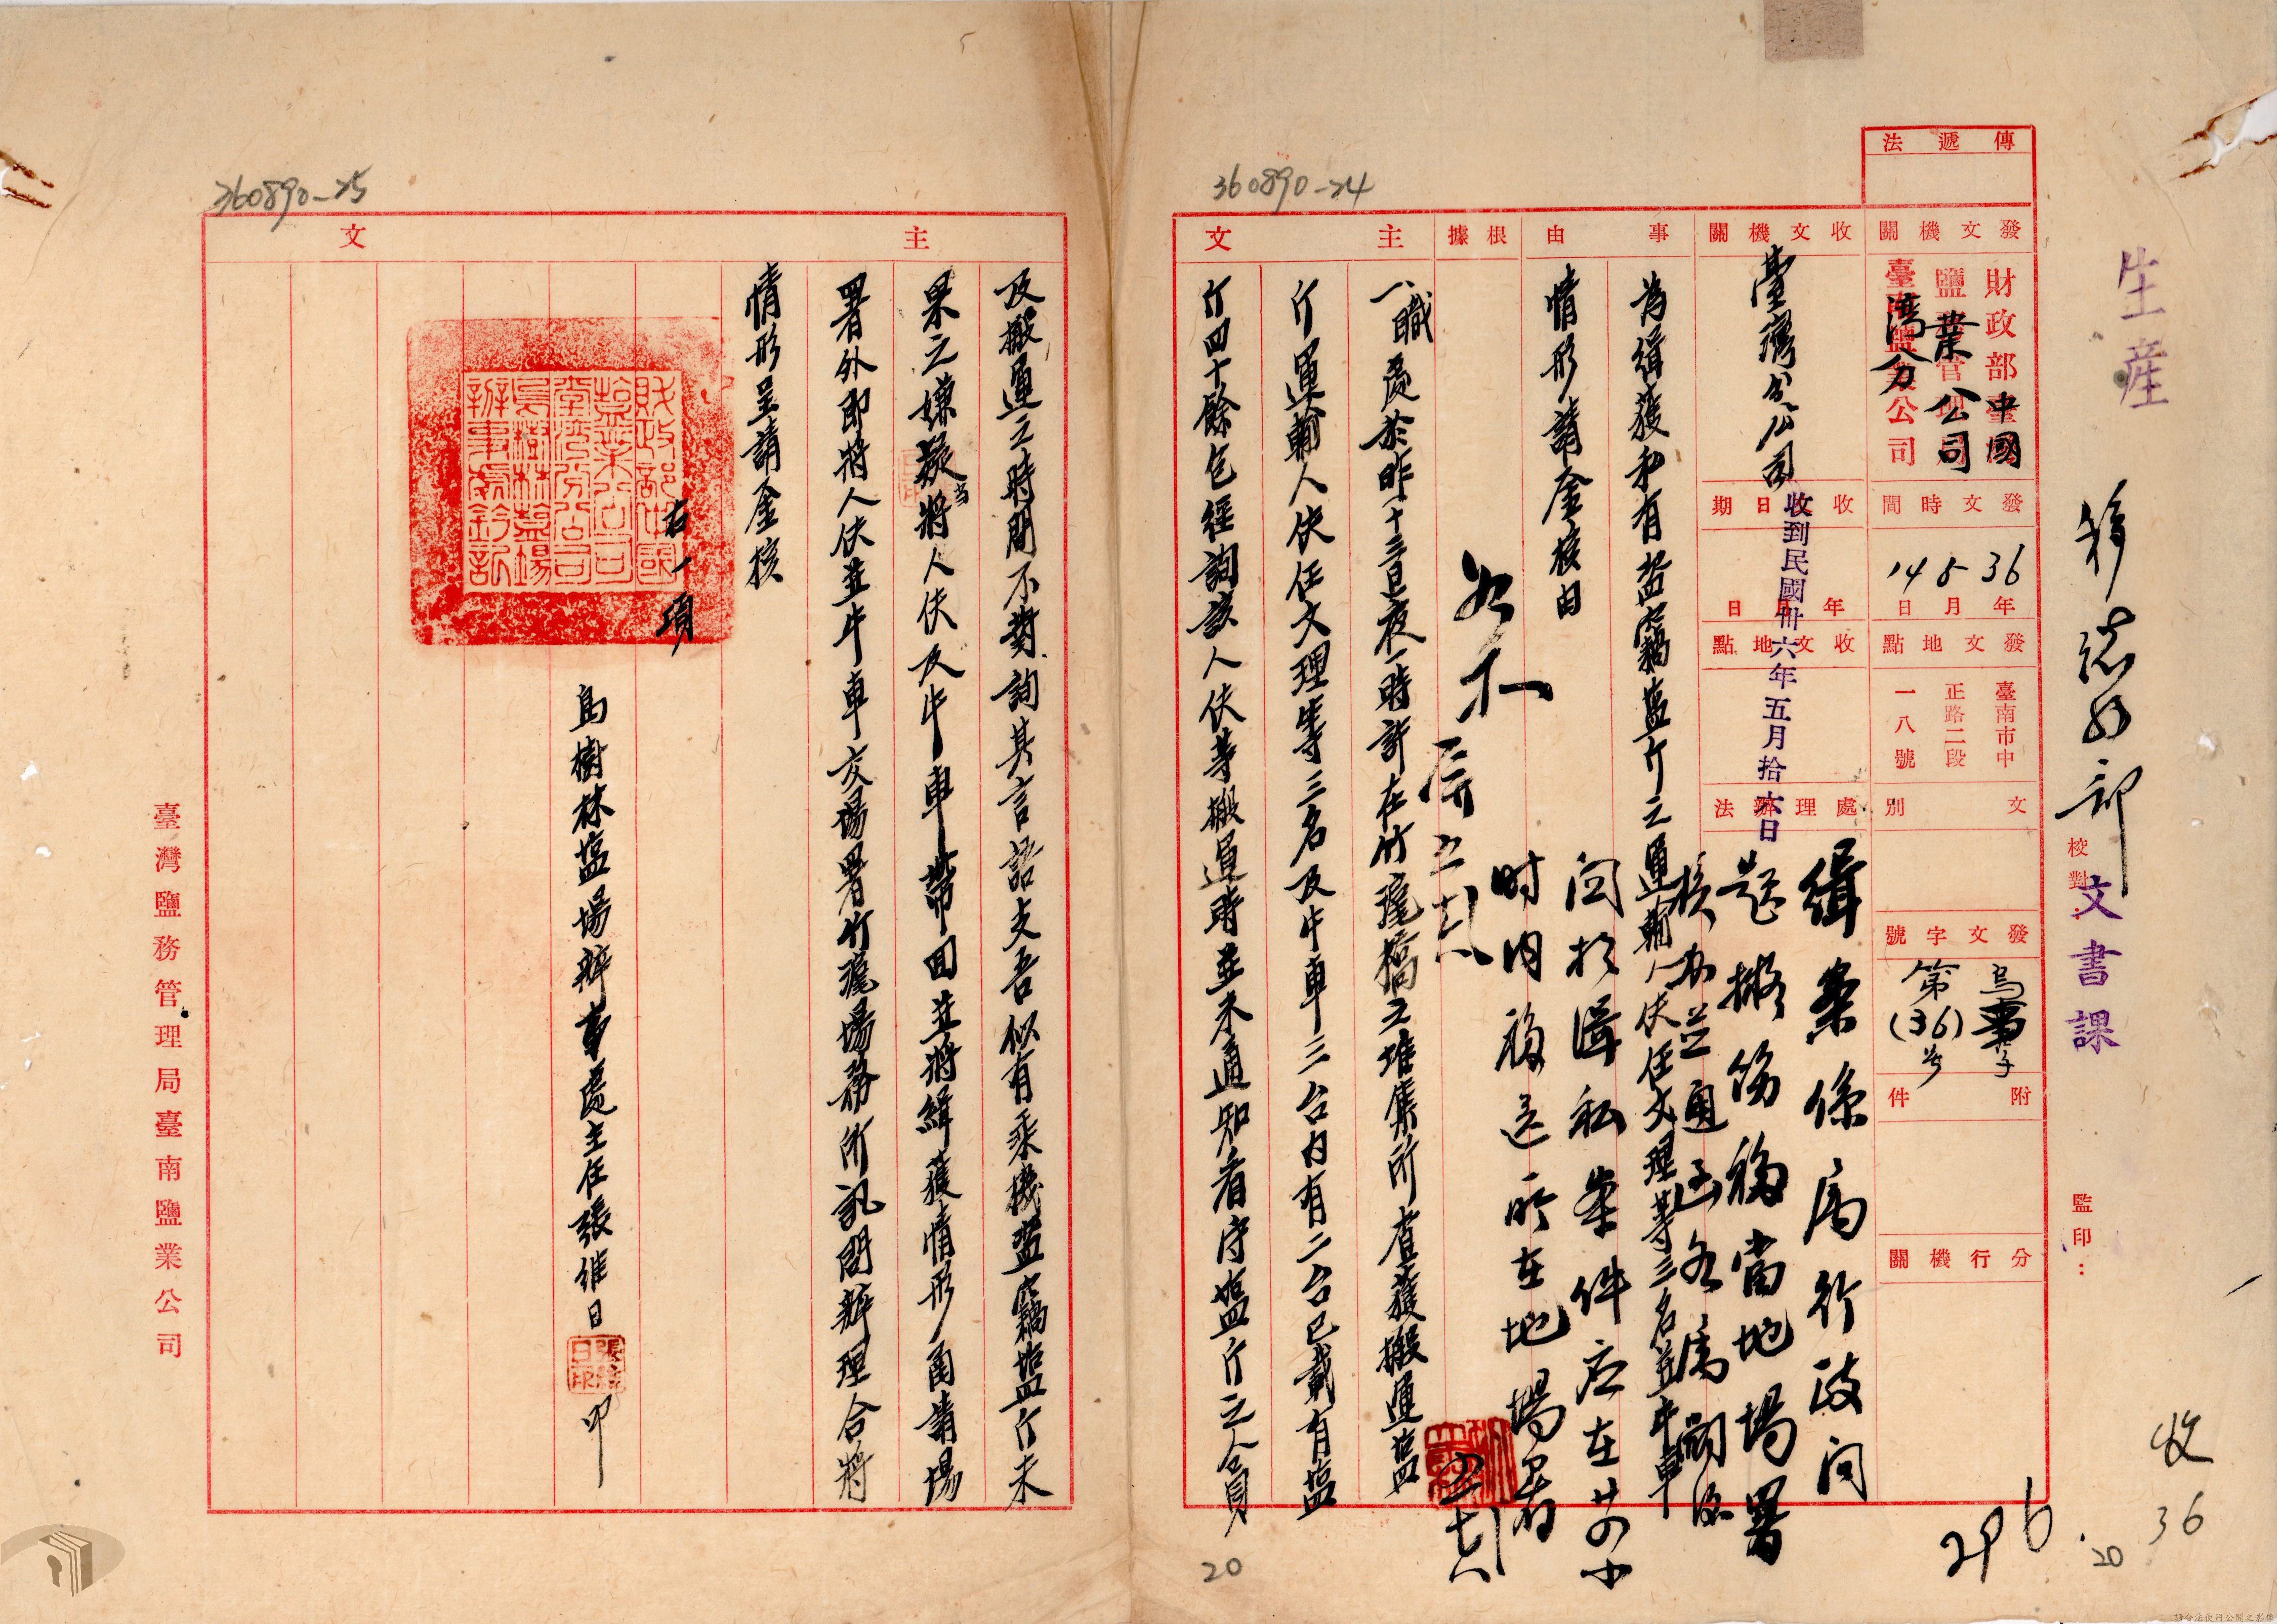 生産
移流口部
文書課
校對
監印：
收
36
20
296
傳遞法
發文機關
財政部臺灣
鹽務管理局
臺南鹽業公司
中國
鹽業公司
灣分
發文時間
36年5月14日
發文地點
臺南市中
正路二段
一八號
文別
發文字號
烏字
第(36)号
附件
分行機關
收文機關
臺灣分公司
收文日期
年月日
收到民國卅六年五月拾六日
收文地點
處理辦法
緝案係屬行政
題擬飭移當地場署
核办並通函各屬嗣後
関於緝私案件应在廿四小
时內移送所在地場署
事由
為緝獲私有盜竊塩斤之運輸人伕任文理等三名並牛車
情形請鑒核由
根據
如擬
主文
一、職處於昨十三日夜一時許在竹篙橋之堆集所查獲搬運塩
斤運輸人伕任文理等三名及牛車三台內有二台已載有塩
斤四十餘包經詢該人伕等搬運時並未通知看守塩斤之人員
360890-24
20
360890-25
主文
及搬運之時間不對詢其言語支吾似有乘機盜竊塩斤未
果之嫌疑当將人伕及牛車帶回並將緝獲情形函請場
署外即將人伕並牛車交場署竹篙場務所訊問辦理合將
情形呈請鑒核
右一項
財政部中國
鹽業公司
臺灣分公司
烏樹林鹽場
辦事處鈐記
烏樹林塩場辦事處主任張維日
張維日印
叩
臺灣鹽務管理局臺南鹽業公司